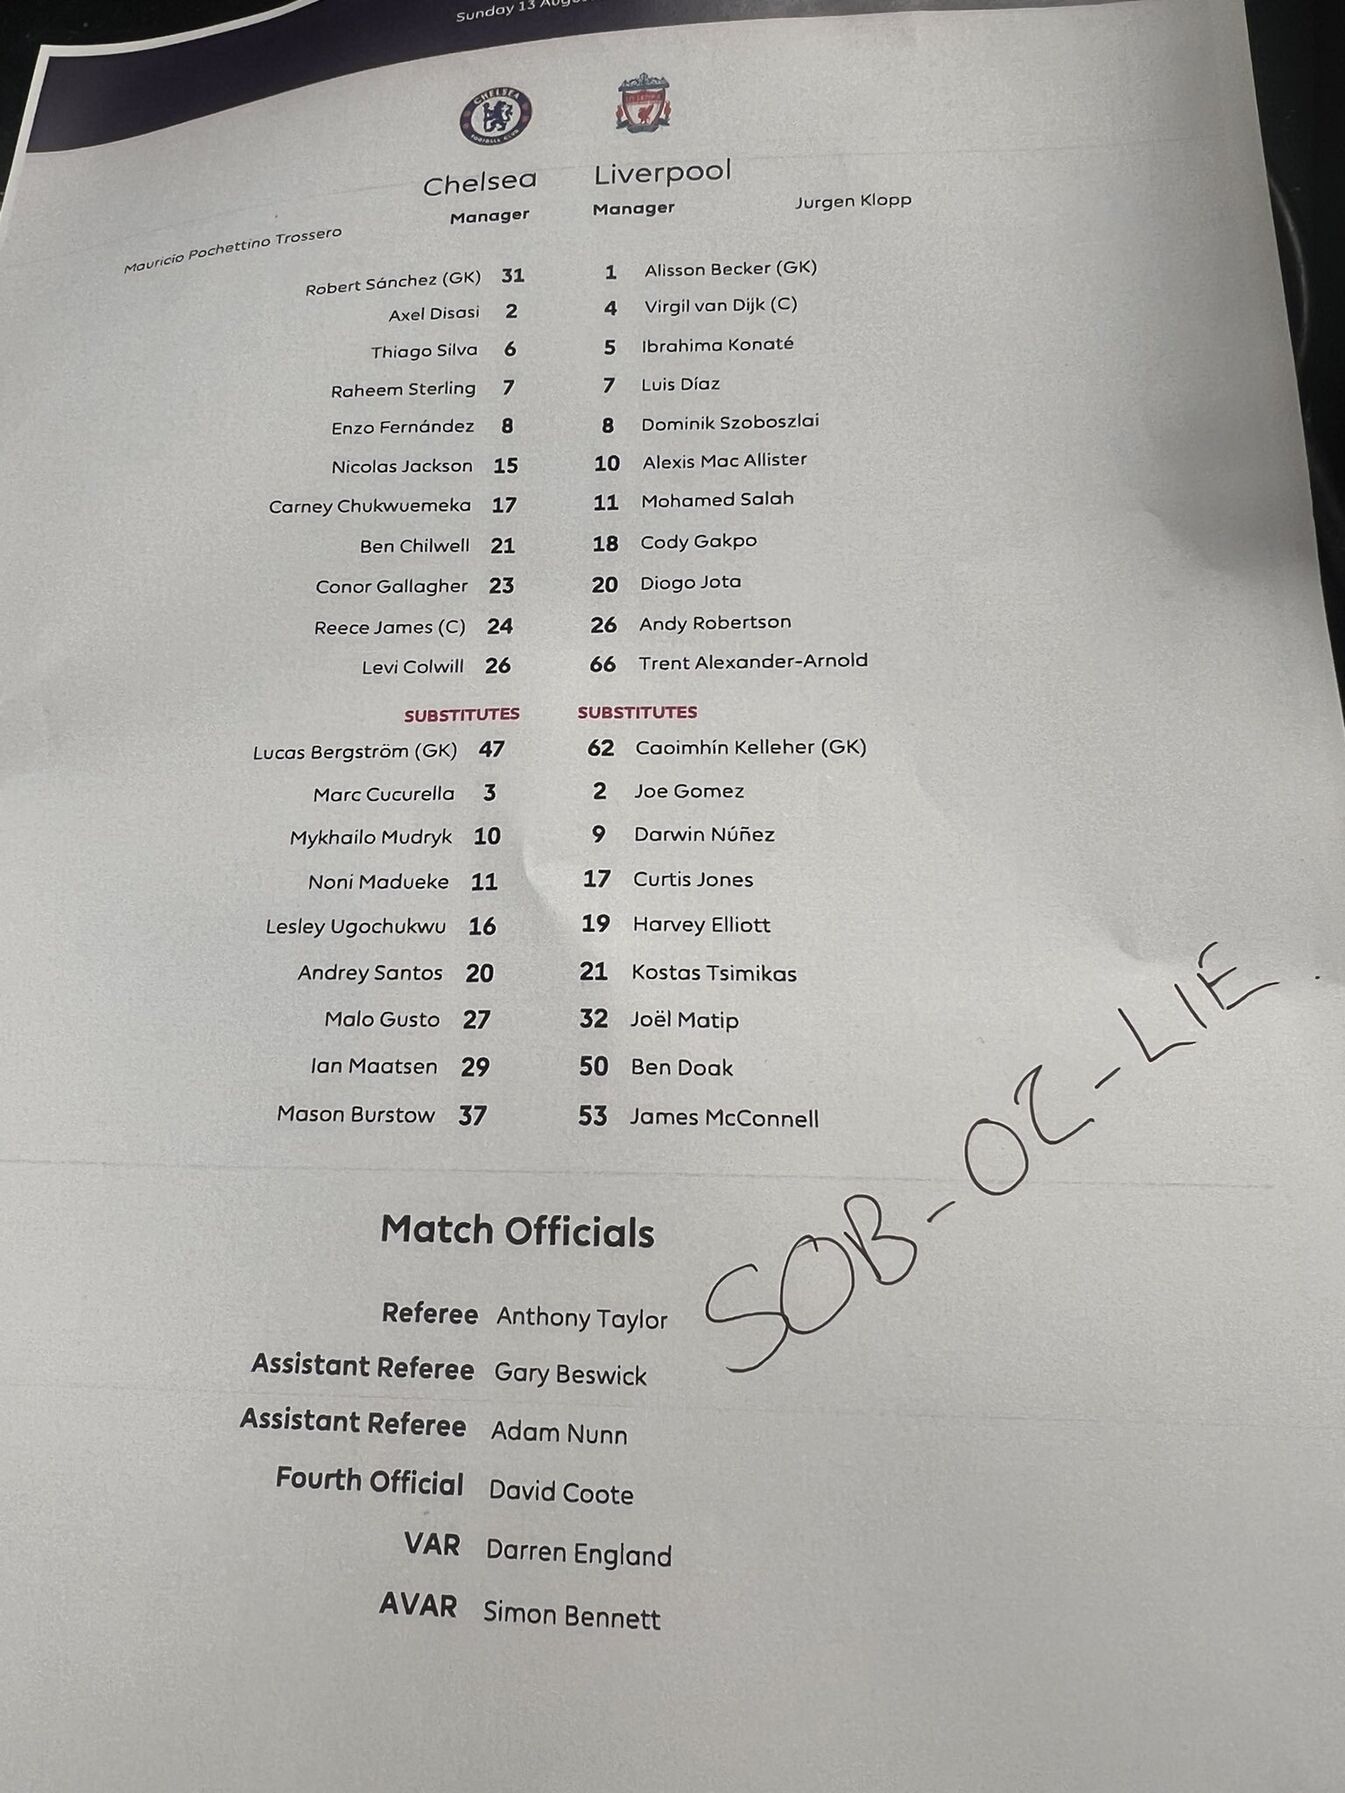 Sunday 13 August
CHELSEA
FOOTBALL CLUB
Chelsea Liverpool
Manager Manager Jurgen Klopp
Mauricio Pochettino Trossero
Robert Sánchez (GK) 31 1 Alisson Becker (GK)
Axel Disasi 2 4 Virgil van Dijk (C)
Thiago Silva 6 5 Ibrahima Konaté
Raheem Sterling 7 7 Luis Díaz
Enzo Fernández 8 8 Dominik Szoboszlai
Nicolas Jackson 15 10 Alexis Mac Allister
Carney Chukwuemeka 17 11 Mohamed Salah
Ben Chilwell 21 18 Cody Gakpo
Conor Gallagher 23 20 Diogo Jota
Reece James (C) 24 26 Andy Robertson
Levi Colwill 26 66 Trent Alexander-Arnold
SUBSTITUTES SUBSTITUTES
Lucas Bergström (GK) 47 62 Caoimhín Kelleher (GK)
Marc Cucurella 3 2 Joe Gomez
Mykhailo Mudryk 10 9 Darwin Núñez
Noni Madueke 11 17 Curtis Jones
Lesley Ugochukwu 16 19 Harvey Elliott
Andrey Santos 20 21 Kostas Tsimikas
Malo Gusto 27 32 Joël Matip
Ian Maatsen 29 50 Ben Doak
Mason Burstow 37 53 James McConnell
SOB-OZ-LIE.
Match Officials
Referee Anthony Taylor
Assistant Referee Gary Beswick
Assistant Referee Adam Nunn
Fourth Official David Coote
VAR Darren England
AVAR Simon Bennett